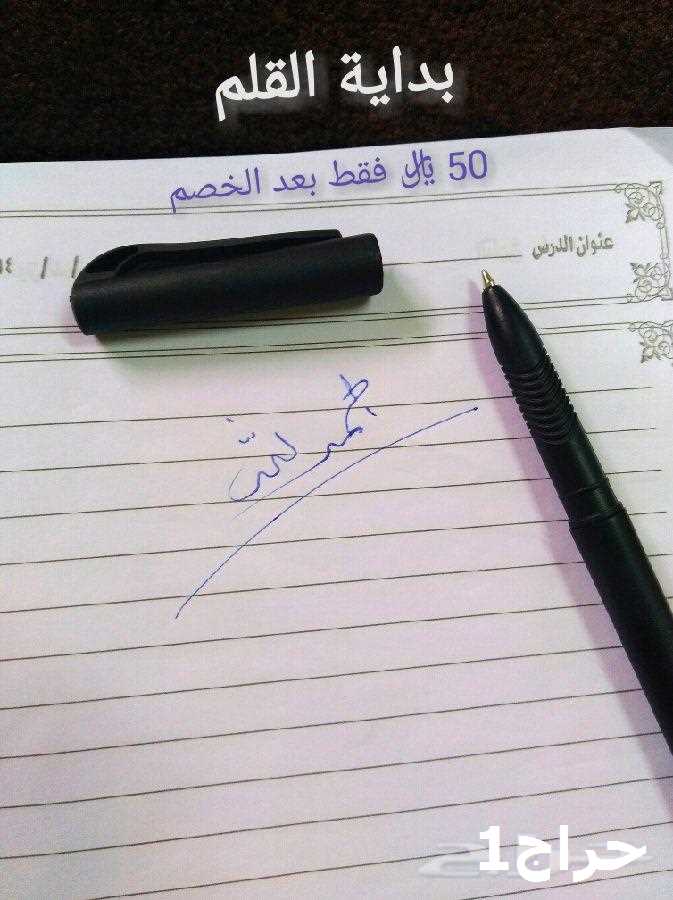 بداية القلم
50 ﷼ فقط بعد الخصم
عنوان الدرس / / ١٤
حراج1